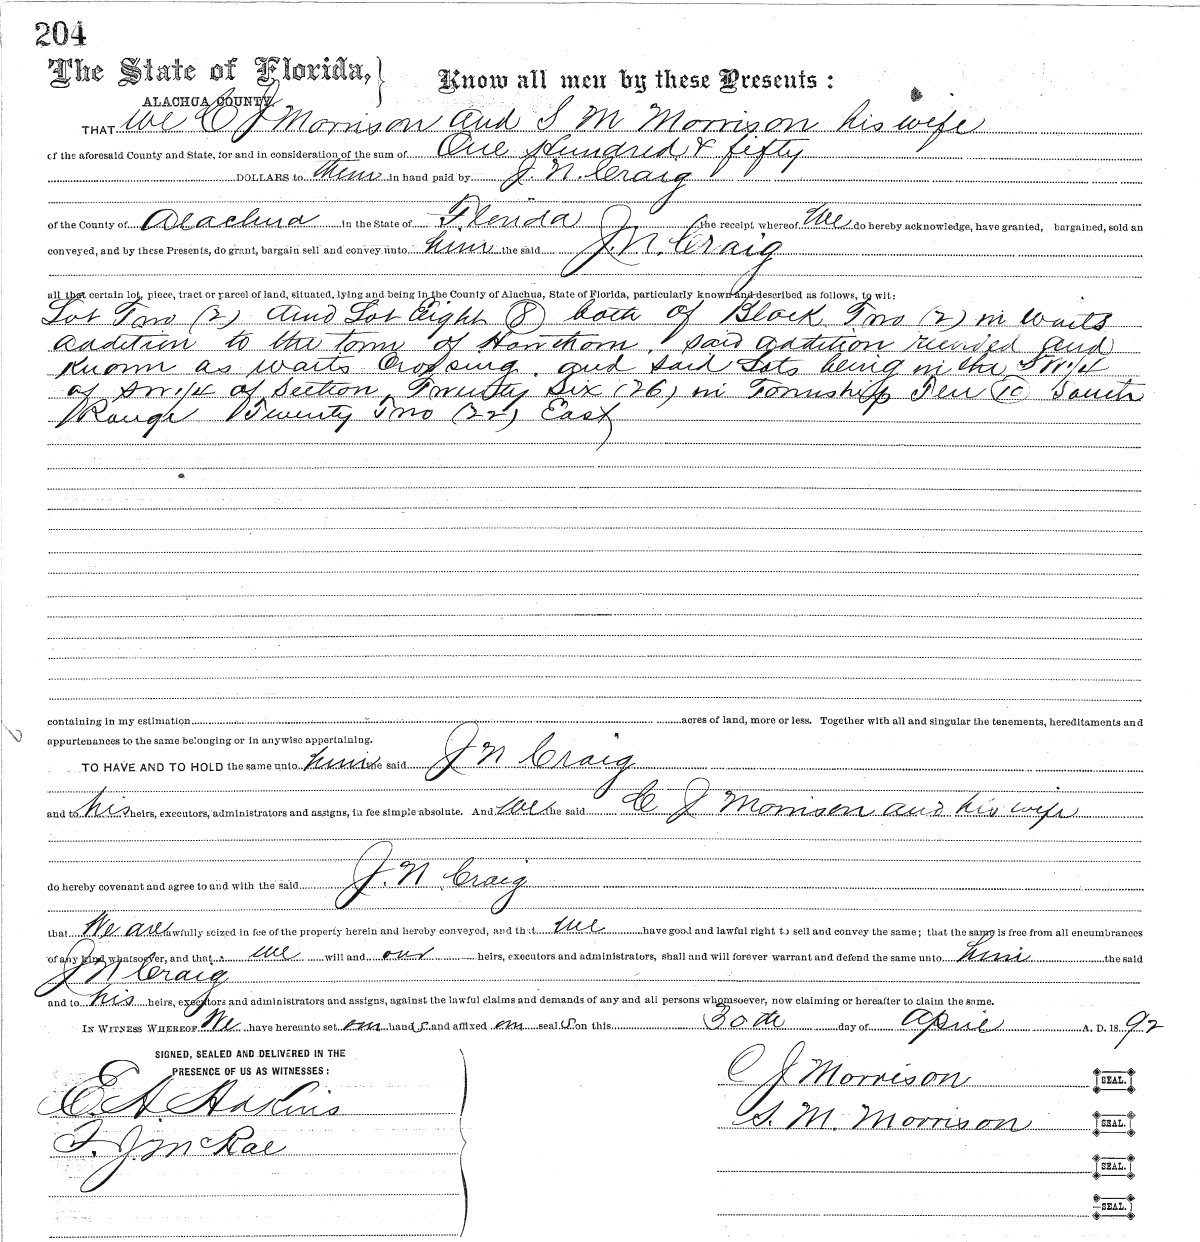 204
The State of Florida,
ALACHUA COUNTY.
Know all men by these Presents:
THAT We C J Morrison and S M Morrison his wife
of the aforesaid County and State, for and in consideration of the sum of One Hundred & fifty
DOLLARS to them in hand paid by J. N. Craig
of the County of Alachua in the State of Florida the receipt whereof we do hereby acknowledge, have granted, bargained, sold an
conveyed, and by these Presents, do grant, bargain sell and convey unto him the said J. N. Craig
all that certain lot, piece, tract or parcel of land, situated, lying and being in the County of Alachua, State of Florida, particularly known and described as follows, to wit:
Lot Two (2) and Lot Eight (8) both of Block Two (2) in Waits
addition to the town of Hawthorn. said addition and
known as Waits Crossing. and said Lots being in the SW 1/4
of SW 1/4 of Section Twenty Six (26) in Township Ten (10) South
Range Twenty Two (22) East
containing in my estimation acres of land, more or less. Together with all and singular the tenements, hereditaments and
appurtenances to the same belonging or in anywise appertaining.
TO HAVE AND TO HOLD the same unto him the said J N Craig
and to his heirs, executors, administrators and assigns, in fee simple absolute. And we the said C J Morrison and his wife
do hereby covenant and agree to and with the said J. N Craig
that We are lawfully seized in fee of the property herein and hereby conveyed, and that we have good and lawful right to sell and convey the same; that the same is free from all encumbrances
of any kind whatsoever, and that we will and our heirs, executors and administrators, shall and will forever warrant and defend the same unto him the said
J N Craig
and to his heirs, executors and administrators and assigns, against the lawful claims and demands of any and all persons whomsoever, now claiming or hereafter to claim the same.
IN WITNESS WHEREOF We have hereunto set our hand s and affixed our seal s on this 30th day of April A. D. 18 92
SIGNED, SEALED AND DELIVERED IN THE
PRESENCE OF US AS WITNESSES:
C J Morrison SEAL.
E. A Adkins
S. M. Morrison SEAL.
F. J. McRae
SEAL.
SEAL.